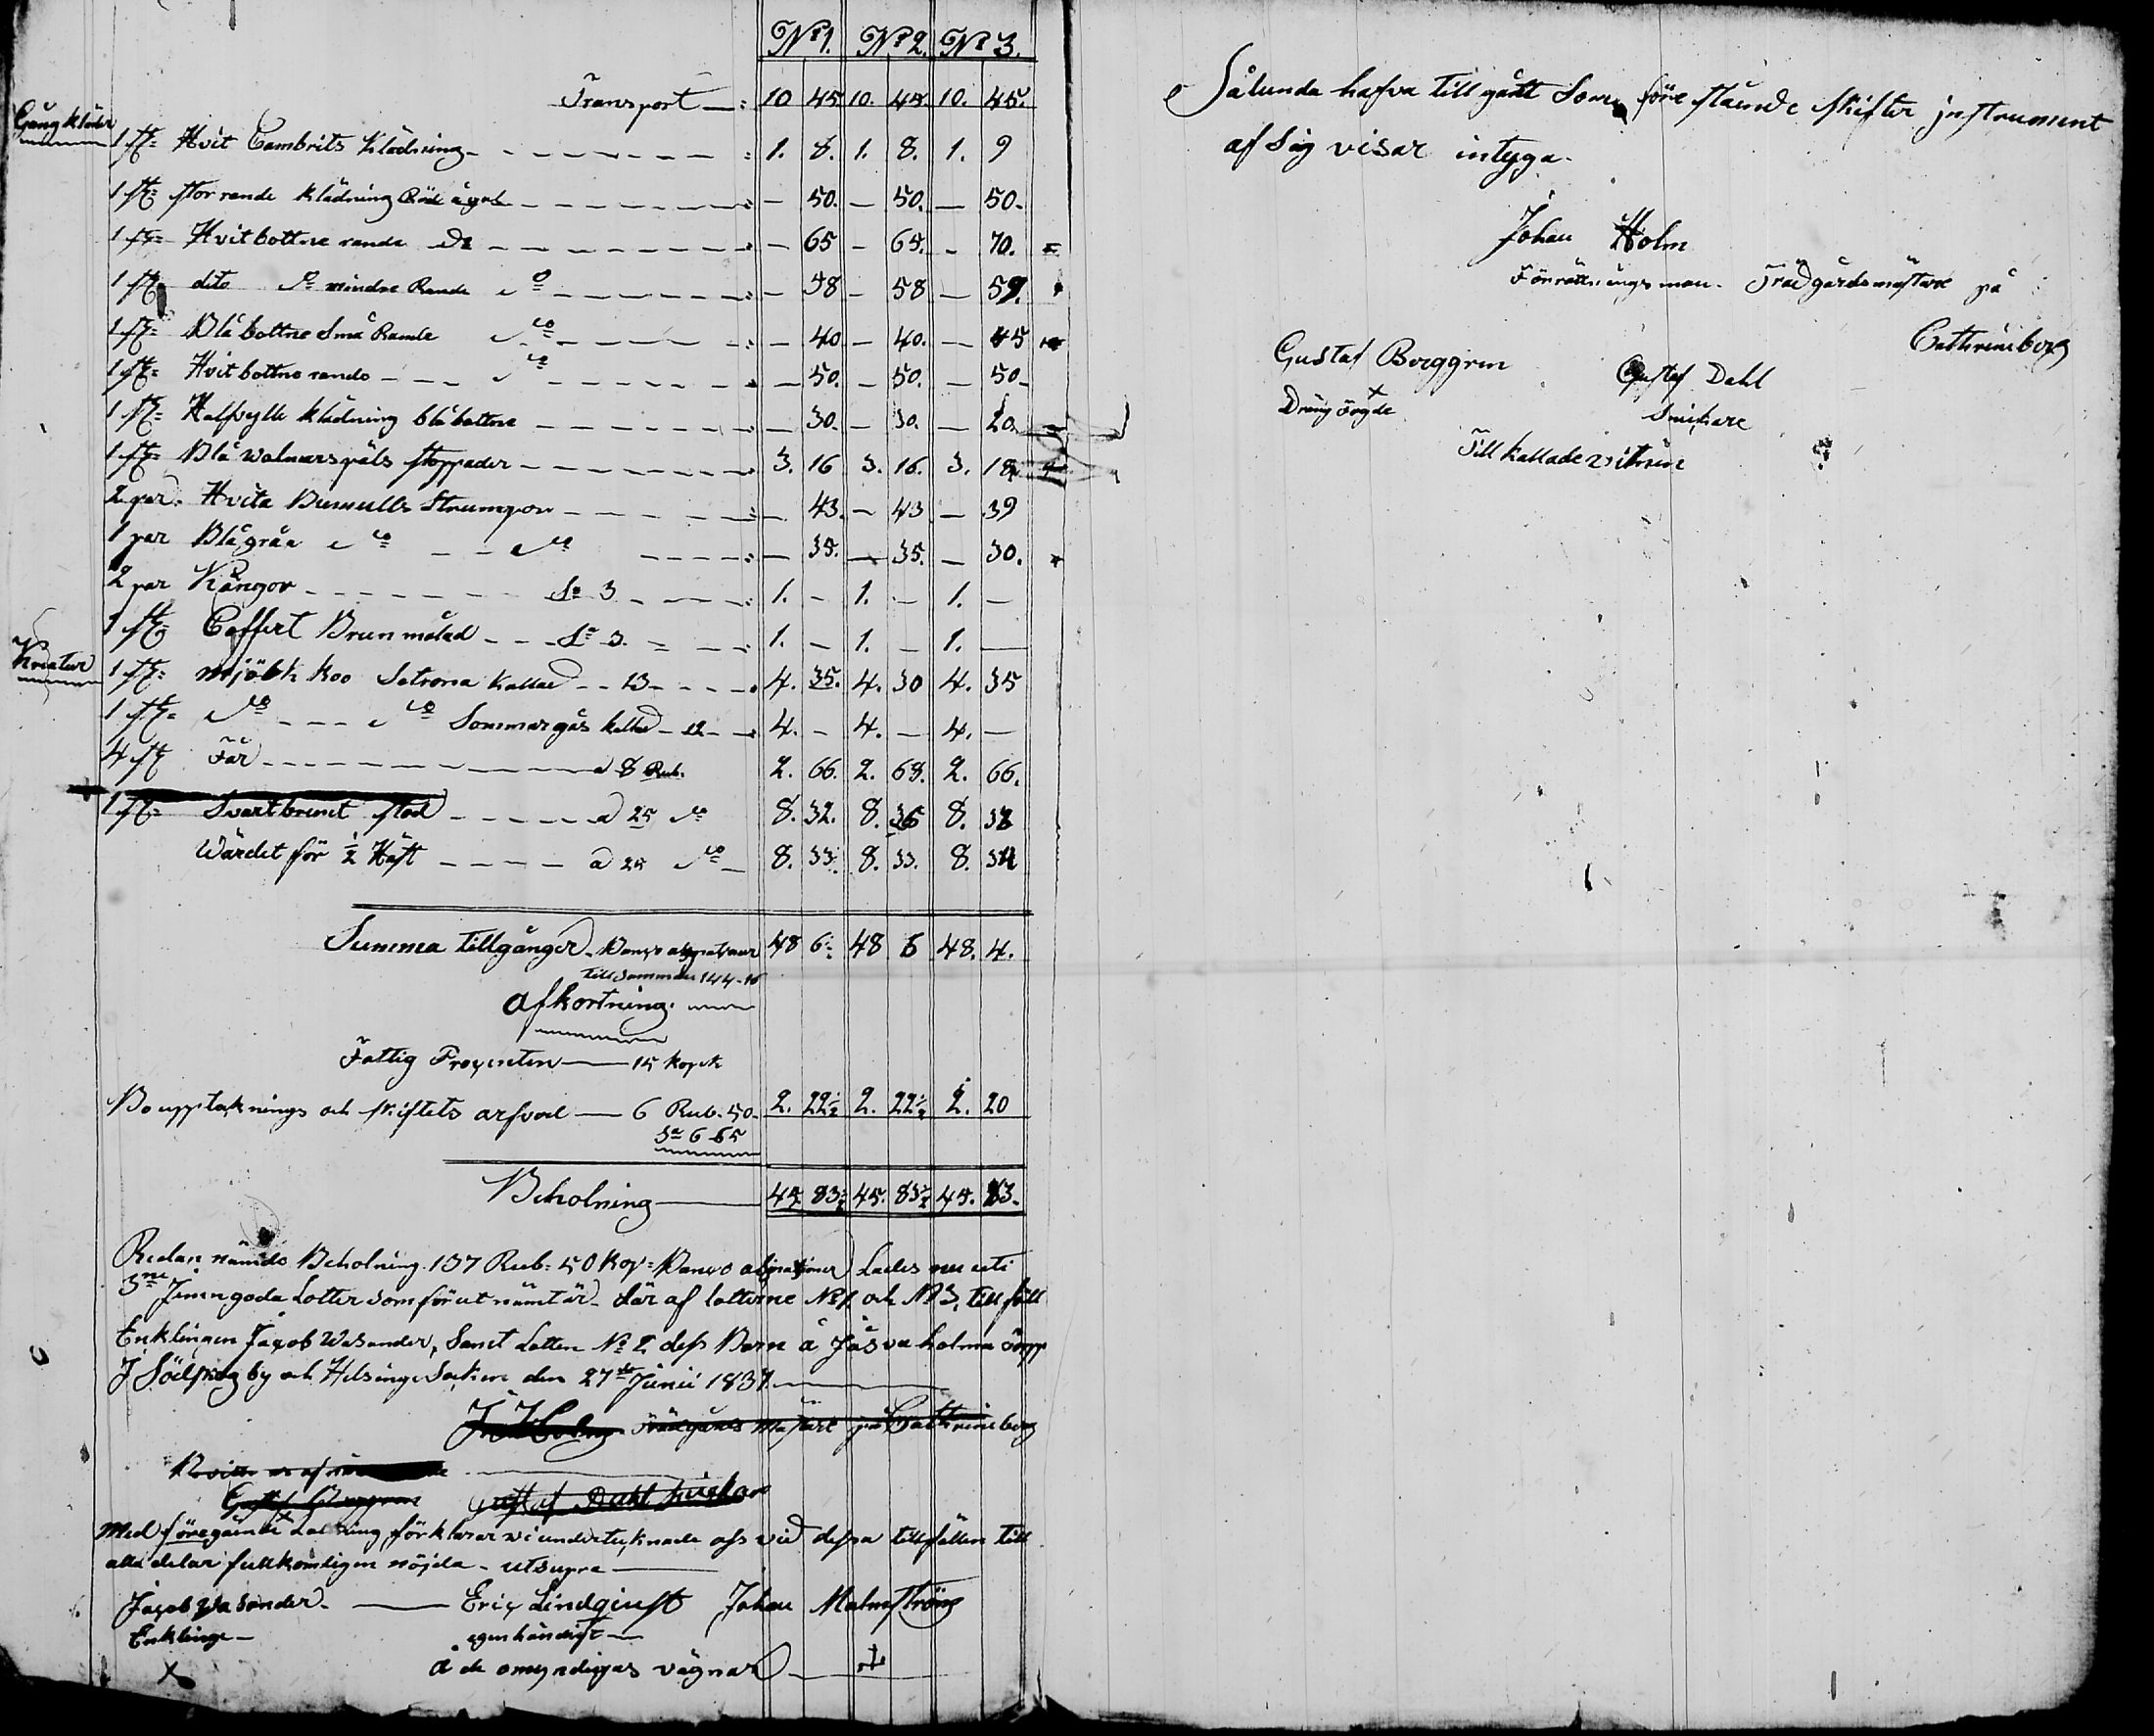 No 1. No 2. No 3.
Transport — : 10 45 10. 45. 10. 45.
Gångkläder
1 st: Hvit Cambrits Klädning - - - : 1. 8. 1. 8. 1. 9
1 st: storrande klädning Röd å gul - - - : — 50. — 50. — 50.
1 st: Hvitbottne rande do - - - : — 65 — 65. — 70.
1 st: dito do mindre Rande do - - - : — 58 — 58 — 59.
1 st: Blåbottne Små Rande do - - - : — 40 — 40. — 45
1 st: Hvitbottne rande - - - do - - - : — 50. — 50. — 50.
1 st: Halfsylle klädning blåbottne - - - : — 30. — 30. — 20.
1 st: Blå walmarspäls stoppader - - - : 3. 16 3. 16. 3. 18
2 par. Hvita Bumulls Strumpor - - - : — 43. — 43 — 39
1 par Blågråa do - - do - - - : — 35. — 35. — 30.
2 par Kängor - - - Sa 3 - - - : 1. — 1. — 1. —
1 st: Coffert Brunmålad - - - Sa 3. - - : 1. — 1. — 1. —
Kreatur
1 st: Mjölk Koo Satrona Kallad - - 13 - - - : 4. 35. 4. 30 4. 35
1 st: do - - - do Sommargås kallad - 12 - : 4. — 4. — 4. —
4 st Får - - - a 8 Rub. 2. 66. 2. 68. 2. 66.
1 st: Svartbrunt stod - - - a 25 do 8. 32. 8. 36 8. 32
Wärdet för ½ Häst - - - a 25 do 8. 33. 8. 33. 8. 34
Summa Tillgångar - Banco assignationer 48 6: 48 6 48. 4.
Tillsamman 144-16
Afkortning.
Fattig Procenten — 15 Kopek
Boupptecknings och skiftets arfvode — 6 Rub. 50. 2. 22½ 2. 22½ 2. 20
Sa 6 65
Beholning — 45. 83½ 45. 83½ 45. 83.
Redan nämde Beholning 137 Rub: 50 Kop: Banco assignationer Lades nu uti
3ne Jemngoda Lotter som förut nämt är - där af lotterne No 1. och No 3, till föll
Enklingen Jacob Wasander, Samt Lotten No 2 dess Barn å Jåsvaholma torpp
J by och Helsinge Socken den 27de Junii 1837.
J Holm Trädgårds Mästare på Cathrineberg
Gustaf Dahl
Med föregående förklarar vi undertecknade oss vid dessa tillfällen till
alla delar fullkomligen nöjda - utsupra —
Jacob Wasander. — Eric Lindqvist Johan Malmström
Enklinge — egenhändigt —
å de omyndigas vägnar —
Sålunda hafva tillgått Som före stående skiftes jnstrument
af Sig visar intyga.
Johan Holm
Förrättningsman. Trädgårdsmästare på
Cathrineberg
Gustaf Berggren Gustaf Dahl
Dräng Snickare
Till kallade vitnen